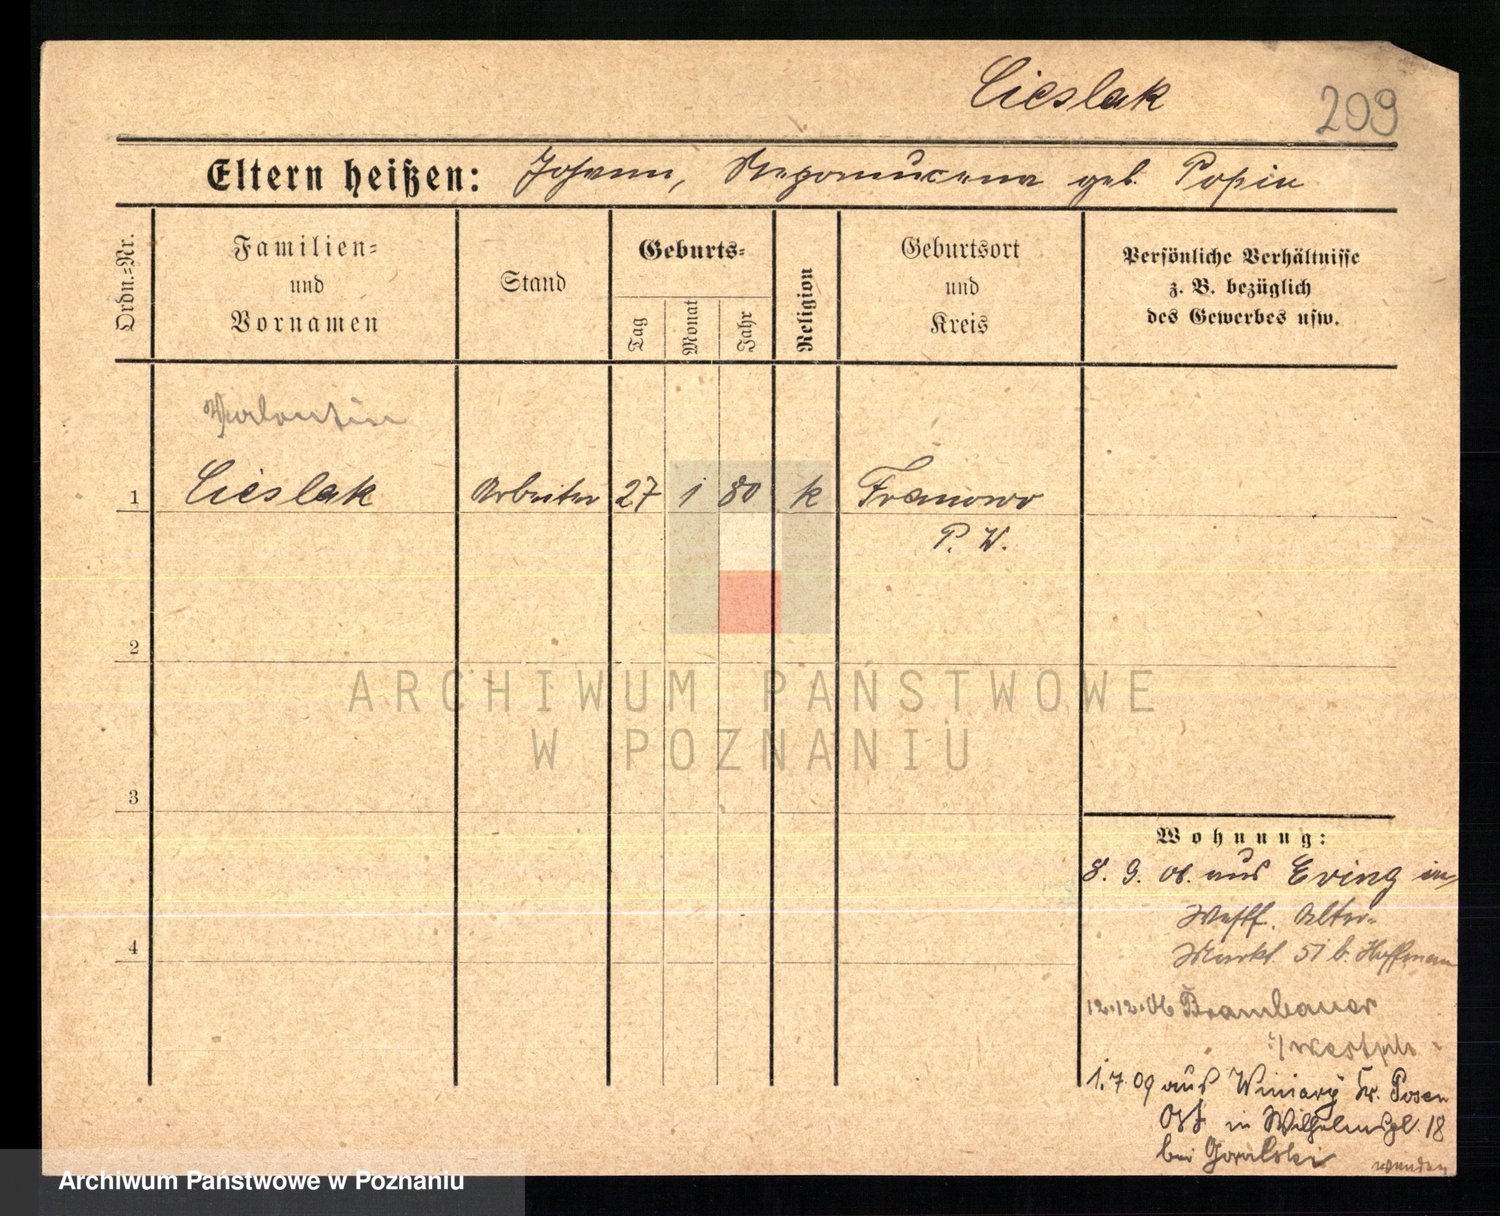 Cieslak
209
Eltern heißen: Johann, Nepomucena geb. Posin
Ordn.=Nr.
Familien=
und
Vornamen
Stand
Geburts=
Tag
Monat
Jahr
Religion
Geburtsort
und
Kreis
Persönliche Verhältnisse
z. B. bezüglich
des Gewerbes usw.
Valentin
1 Cieslak Arbeiter 27 1 80 k Franowo
P. W.
2
ARCHIWUM PAŃSTWOWE
W POZNANIU
3
Wohnung:
8. 9. 06. aus Eving in
Westf. Alter-
4
Markt. 51 b. Hoffmann
12.12.06 Brambauer
i/Westph
1.7.09 aus Winiary Kr. Posen
Ost in Wilhelmspl. 18
bei Goralski
wenden
Archiwum Państwowe w Poznaniu